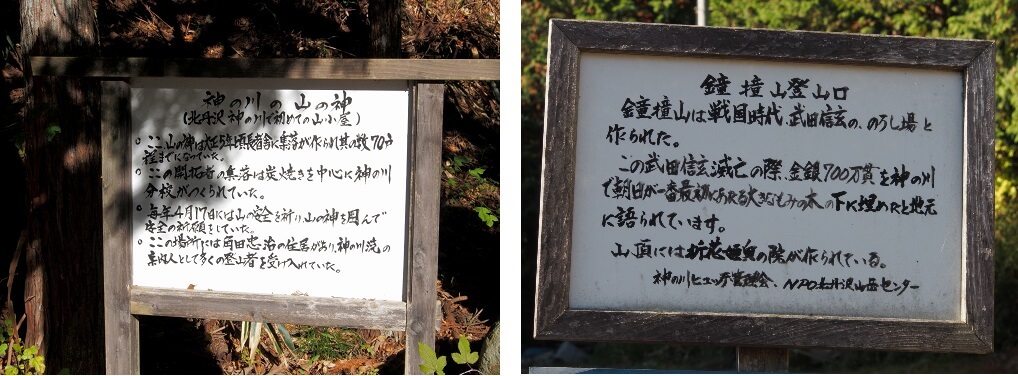 神の川の山の神
(北丹沢 神の川で初めての山小屋)
○ ここ山の神は大正5年頃長者舎に集落が作られ其の数70戸
程までになっていた。
○ この開拓者の集落は炭焼きを中心に神の川
分校がつくられていた。
○ 毎年4月17日には山の安全を祈り、山の神を囲んで
安全の祈願をしていた。
○ ここの場所には百田忠治の住居があり、神の川流の
案内人として多くの登山者を受け入れていた。
鐘撞山登山口
鐘撞山は戦国時代、武田信玄の、のろし場と
作られた。
この武田信玄滅亡の際、金銀700万貫を神の川
で朝日が一番最初にあたる大きなもみの木の下に埋めたと地元
に語られています。
山頂には折花姫の
が作られている。
神の川ヒュッテ管理会、NPO北丹沢山岳センター